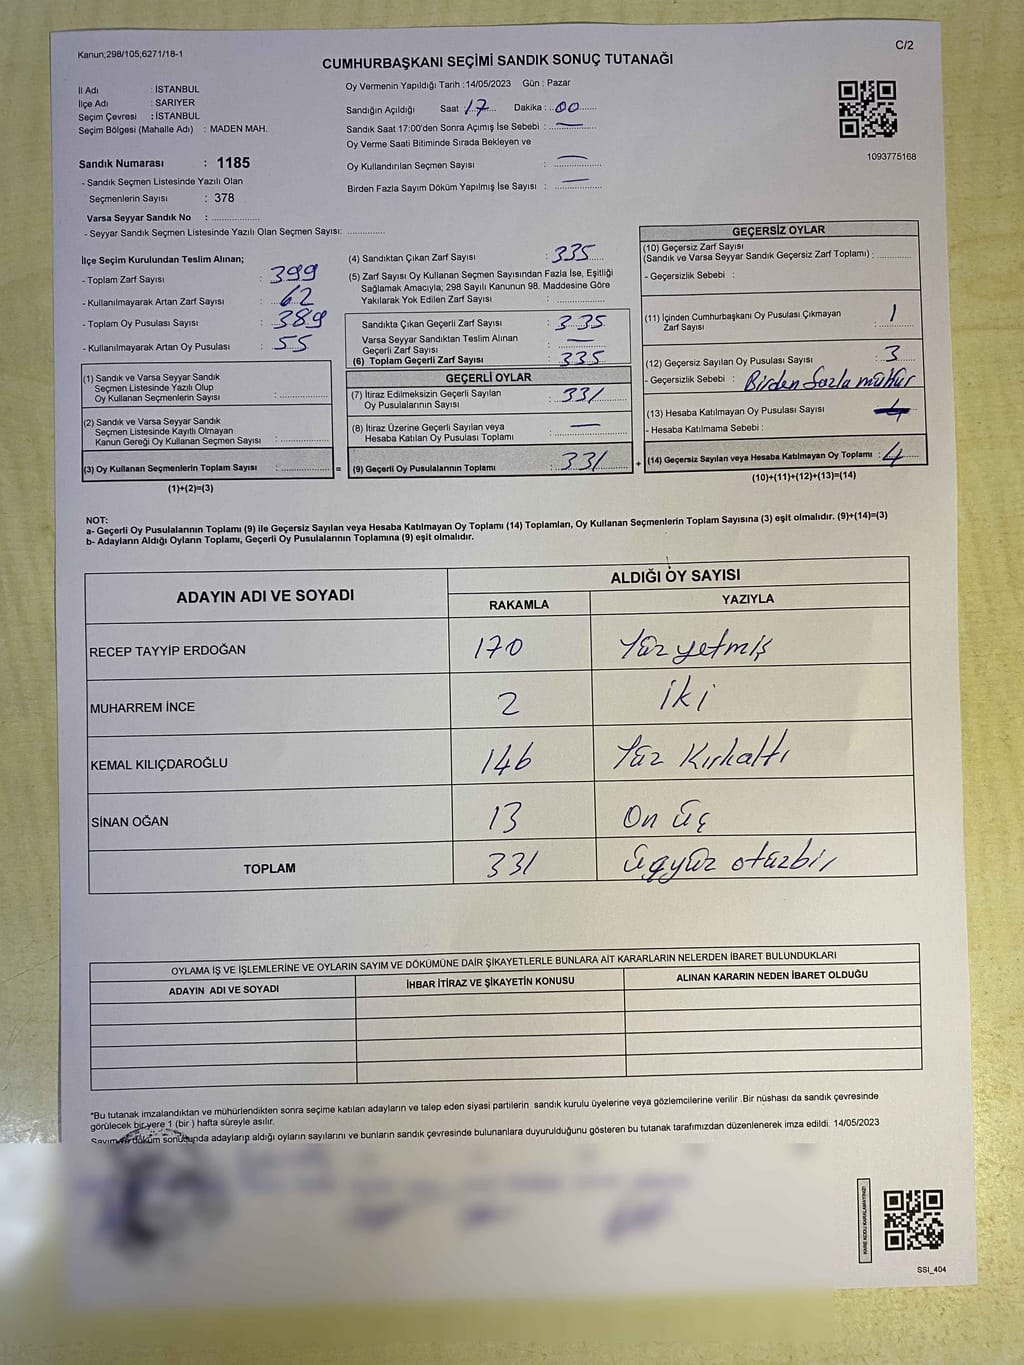 Kanun;298/105;6271/18-1
C/2
CUMHURBAŞKANI SEÇİMİ SANDIK SONUÇ TUTANAĞI
İl Adı : İSTANBUL
İlçe Adı : SARIYER
Seçim Çevresi : İSTANBUL
Seçim Bölgesi (Mahalle Adı) : MADEN MAH.
Sandık Numarası : 1185
- Sandık Seçmen Listesinde Yazılı Olan
Seçmenlerin Sayısı : 378
Varsa Seyyar Sandık No : ..................
- Seyyar Sandık Seçmen Listesinde Yazılı Olan Seçmen Sayısı: .............
Oy Vermenin Yapıldığı Tarih :14/05/2023 Gün : Pazar
Sandığın Açıldığı Saat : 17 Dakika : 00
Sandık Saat 17:00'den Sonra Açımış İse Sebebi : —
Oy Verme Saati Bitiminde Sırada Bekleyen ve
Oy Kullandırılan Seçmen Sayısı : —
Birden Fazla Sayım Döküm Yapılmış İse Sayısı : —
1093775168
İlçe Seçim Kurulundan Teslim Alınan;
- Toplam Zarf Sayısı : 399
- Kullanılmayarak Artan Zarf Sayısı : 62
- Toplam Oy Pusulası Sayısı : 389
- Kullanılmayarak Artan Oy Pusulası : 55
(1) Sandık ve Varsa Seyyar Sandık
Seçmen Listesinde Yazılı Olup
Oy Kullanan Seçmenlerin Sayısı : ..............
(2) Sandık ve Varsa Seyyar Sandık
Seçmen Listesinde Kayıtlı Olmayan
Kanun Gereği Oy Kullanan Seçmen Sayısı : ..............
(3) Oy Kullanan Seçmenlerin Toplam Sayısı : .............. =
(1)+(2)=(3)
(4) Sandıktan Çıkan Zarf Sayısı : 335
(5) Zarf Sayısı Oy Kullanan Seçmen Sayısından Fazla İse, Eşitliği
Sağlamak Amacıyla; 298 Sayılı Kanunun 98. Maddesine Göre
Yakılarak Yok Edilen Zarf Sayısı : ..............
Sandıkta Çıkan Geçerli Zarf Sayısı : 335
Varsa Seyyar Sandıktan Teslim Alınan
Geçerli Zarf Sayısı : —
(6) Toplam Geçerli Zarf Sayısı : 335
GEÇERLİ OYLAR
(7) İtiraz Edilmeksizin Geçerli Sayılan
Oy Pusulalarının Sayısı : 331
(8) İtiraz Üzerine Geçerli Sayılan veya
Hesaba Katılan Oy Pusulası Toplamı : —
(9) Geçerli Oy Pusulalarının Toplamı : 331 +
GEÇERSİZ OYLAR
(10) Geçersiz Zarf Sayısı
(Sandık ve Varsa Seyyar Sandık Geçersiz Zarf Toplamı) : .............
- Geçersizlik Sebebi :
(11) İçinden Cumhurbaşkanı Oy Pusulası Çıkmayan
Zarf Sayısı : 1
(12) Geçersiz Sayılan Oy Pusulası Sayısı : 3
- Geçersizlik Sebebi : Birden fazla mühür
(13) Hesaba Katılmayan Oy Pusulası Sayısı :
- Hesaba Katılmama Sebebi :
(14) Geçersiz Sayılan veya Hesaba Katılmayan Oy Toplamı : 4
(10)+(11)+(12)+(13)=(14)
NOT:
a- Geçerli Oy Pusulalarının Toplamı (9) ile Geçersiz Sayılan veya Hesaba Katılmayan Oy Toplamı (14) Toplamları, Oy Kullanan Seçmenlerin Toplam Sayısına (3) eşit olmalıdır. (9)+(14)=(3)
b- Adayların Aldığı Oyların Toplamı, Geçerli Oy Pusulalarının Toplamına (9) eşit olmalıdır.
ADAYIN ADI VE SOYADI
ALDIĞI OY SAYISI
RAKAMLA YAZIYLA
RECEP TAYYİP ERDOĞAN 170 Yüz yetmiş
MUHARREM İNCE 2 İki
KEMAL KILIÇDAROĞLU 146 Yüz Kırkaltı
SİNAN OĞAN 13 On üç
TOPLAM 331 Üçyüz otuzbir
OYLAMA İŞ VE İŞLEMLERİNE VE OYLARIN SAYIM VE DÖKÜMÜNE DAİR ŞİKAYETLERLE BUNLARA AİT KARARLARIN NELERDEN İBARET BULUNDUKLARI
ADAYIN ADI VE SOYADI İHBAR İTİRAZ VE ŞİKAYETİN KONUSU ALINAN KARARIN NEDEN İBARET OLDUĞU
*Bu tutanak imzalandıktan ve mühürlendikten sonra seçime katılan adayların ve talep eden siyasi partilerin sandık kurulu üyelerine veya gözlemcilerine verilir .Bir nüshası da sandık çevresinde
görülecek bir yere 1 (bir ) hafta süreyle asılır.
Sayım ve döküm sonucunda adayların aldığı oyların sayılarını ve bunların sandık çevresinde bulunanlara duyurulduğunu gösteren bu tutanak tarafımızdan düzenlenerek imza edildi. 14/05/2023
KARE KODU KARALAMAYINIZ!
SSI_404